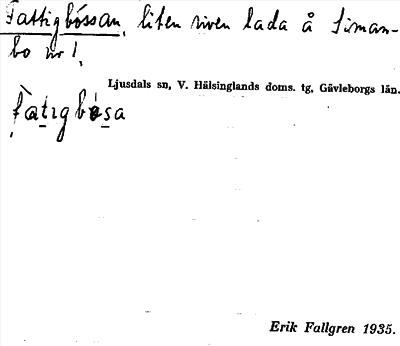 Fattigbössan, liten riven lada å Siman-
bo nr 1.
Ljusdals sn, V. Hälsinglands doms. tg, Gävleborgs län.
fàtɩgbøsa
Erik Fallgren 1935.